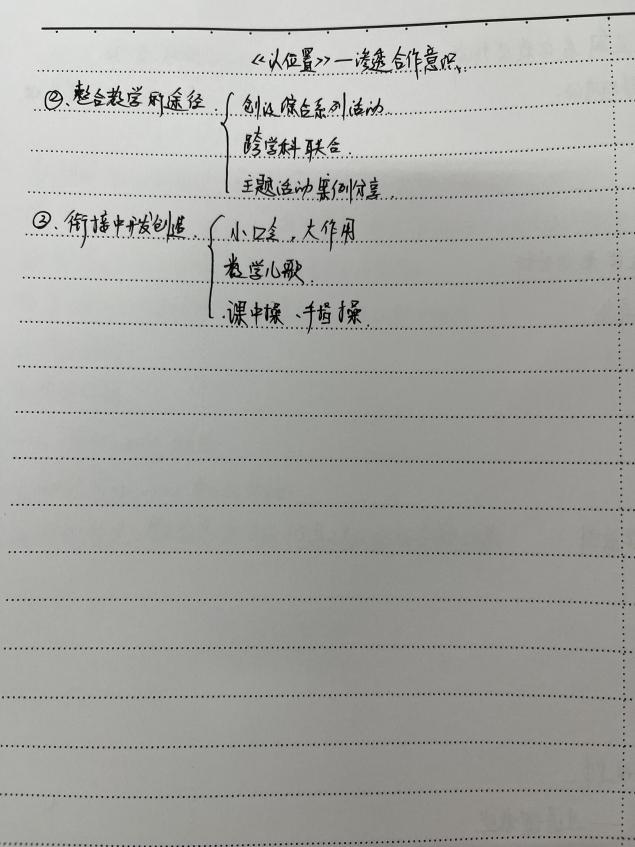 《认位置》—渗透合作意识.
②、整合教学新途径. 创设综合系列活动.
跨学科联合.
主题活动案例分享.
③、衔接中开发创造. 小口令,大作用
数学儿歌.
.课中操、手指操.